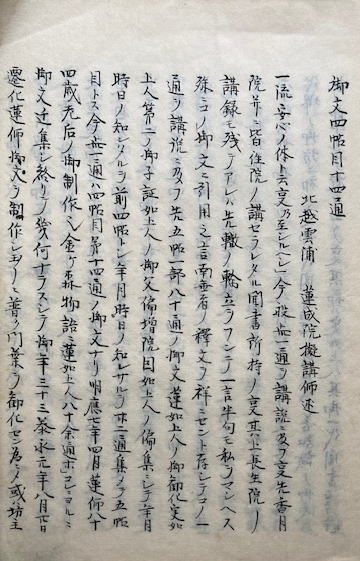 御文四帖目十四通
北越雲浦 蓮成院擬講師述
一流安心ノ体ト云事乃至シルヘシ」今般此一通ヲ講説ニ及フ言先香月
院并ニ皆往院ノ講セラレタル聞書所持ノ事其上長生院ノ
講録モ残テアレハ先轍ノ輪立ヲフンテ一言半句モ私ヲマシヘス
殊ニコノ御文ニ引用之言南無者ノ釋文ヲ祥ニセント存シテナリ一
通ヲ講説ニ及フ先五帖一部八十通ノ御文蓮如上人ノ御勧化実如
上人第二ノ御子証如上人ノ御父偏増院円如上人ノ偏集シテ年月
時日ノ知レタルヲ前四帖トシ年月時日ノ知レサルヲ廿二通集メテ五帖
目トス今此一通ハ四帖目第十四通ノ御文ナリ明應七年四月蓮師八十
四歳老后ノ御制作ヘ金ケ森物語ニ蓮如上人八十余通ホコシヨルニ
御文ヲ集シ終リノ幾何ナラスシテ御年三十三ノ永元年八月廿日
遷化蓮師御文ヲ制作シ玉フト普ク門葉ヲ勧化セン為ニノ或ハ坊主